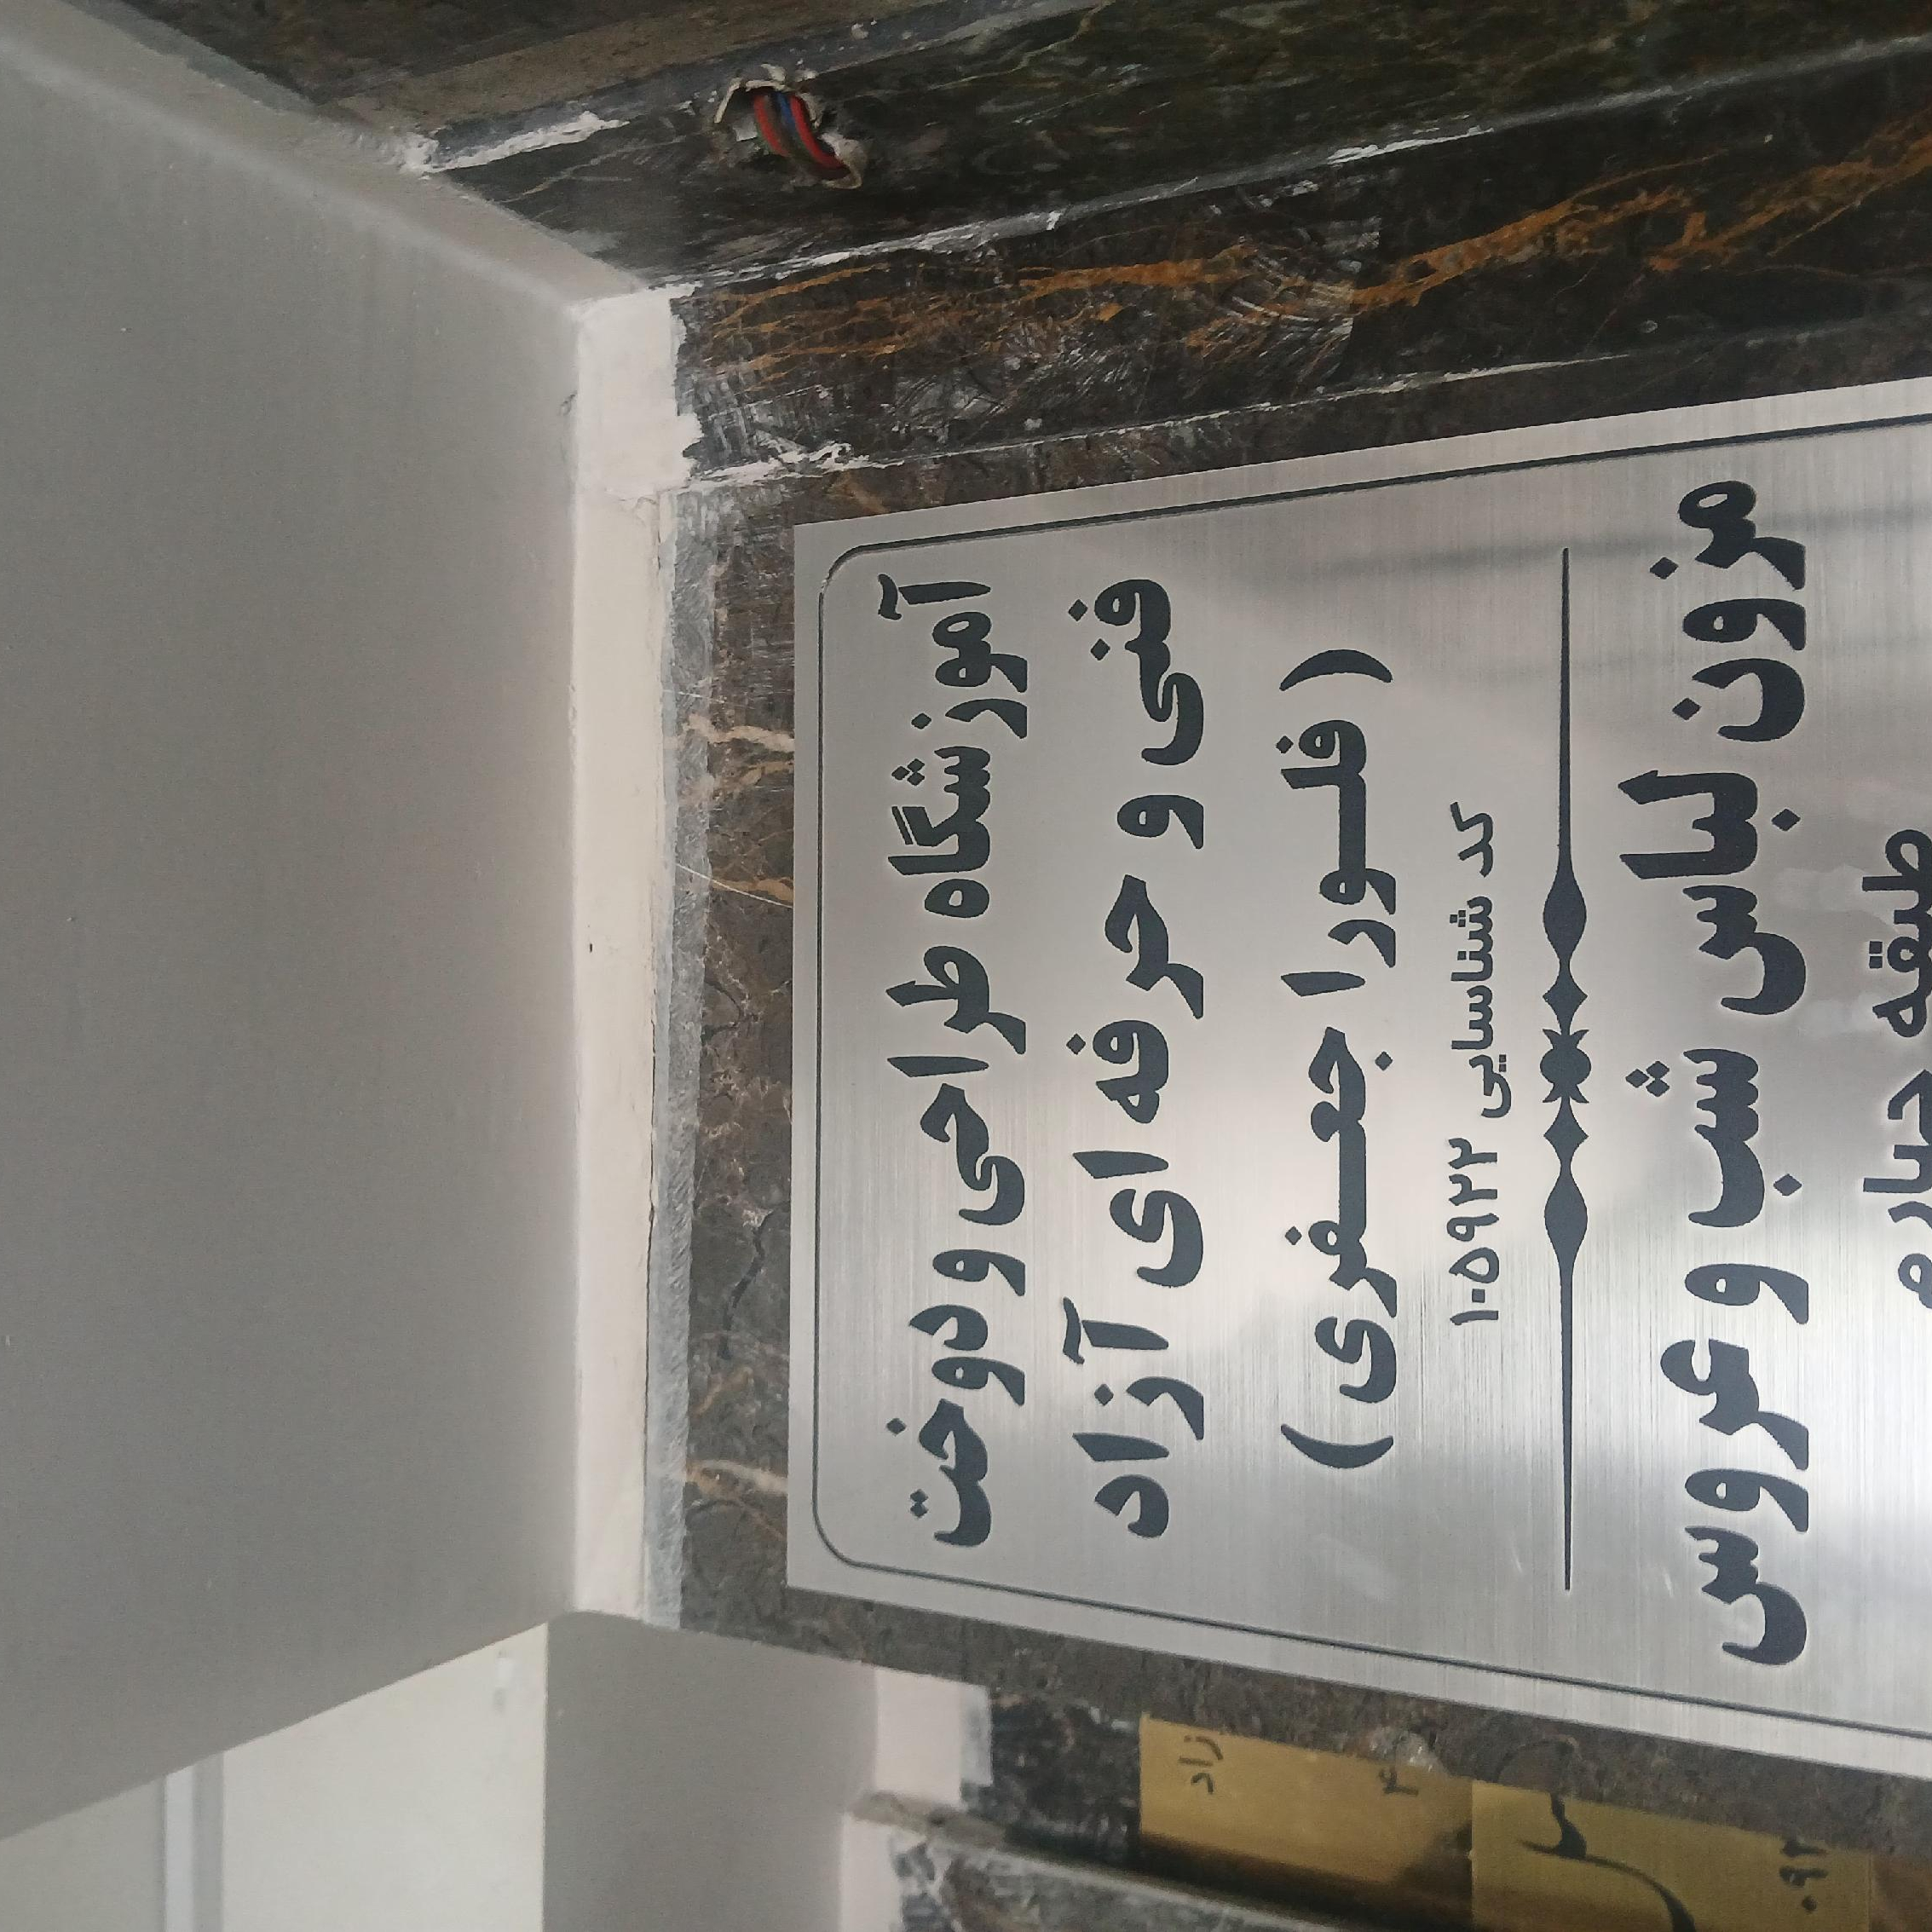 آموزشگاه طراحی و دوخت
فنی و حرفه ای آزاد
( فلورا جعفری )
کد شناسایی ۱۰۵۹۲۲
مزون لباس شب و عروس
طبقه چهارم
زاد